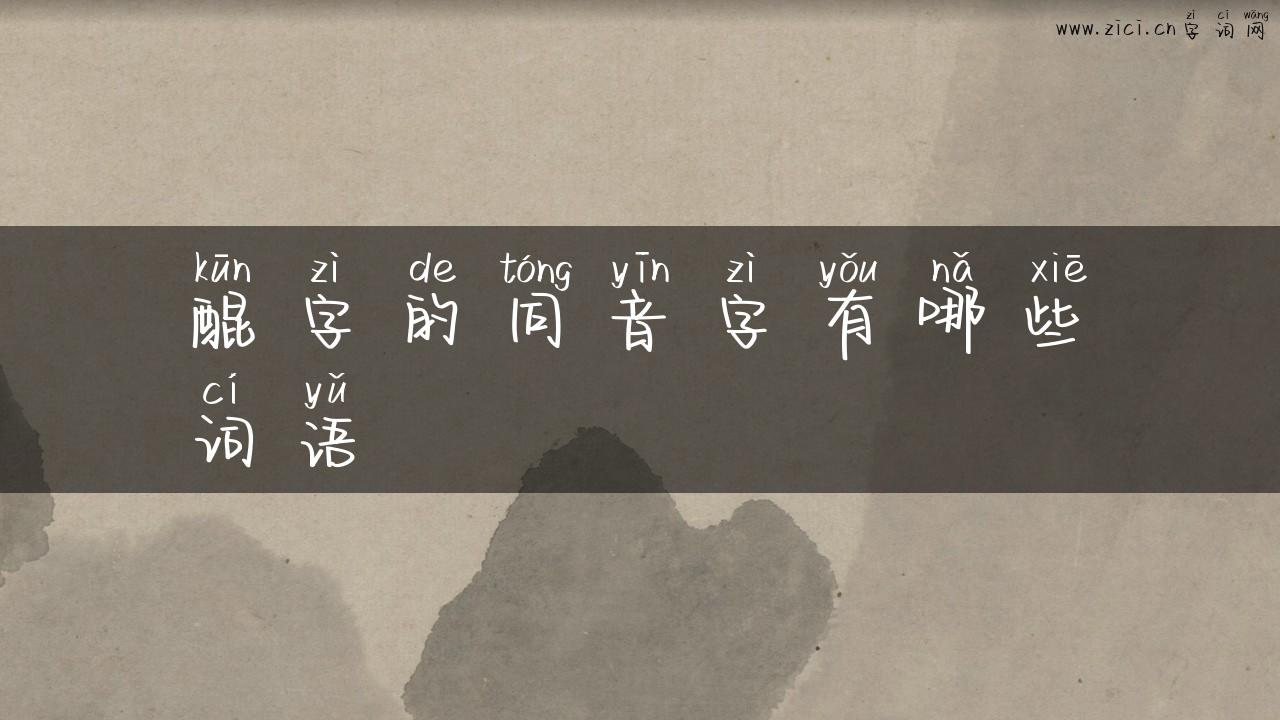 zì cí wǎng
www.zici.cn 字 词 网
kūn zì de tóng yīn zì yǒu nǎ xiē
醌 字 的 同 音 字 有 哪 些
cí yǔ
词 语